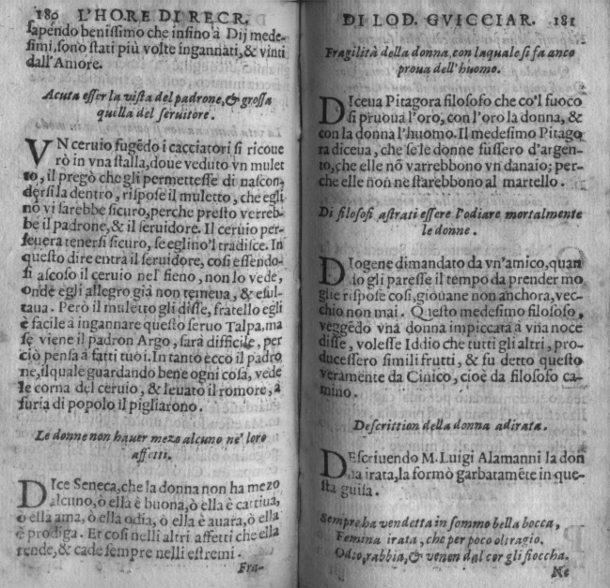 180 L'HORE DI RECR.
sapendo benissimo che infino à Dij mede-
simi, sono stati più volte ingannati, & vinti
dall'Amore.
Acuta esser la vista del padrone, & grossa
quella del seruitore.
VN ceruio fugẽdo i cacciatori si ricoue
rò in vna stalla, doue veduto vn mulet
to, il pregò che gli permettesse di nascon,
dersi la dentro, rispose il muletto, che egli
nõ vi sarebbe sicuro, perche presto verreb-
be il padrone, & il seruidore. Il ceruio per-
seuera tenersi sicuro, se eglino'l tradisce. In
questo dire entra il seruidore, cosi essendo-
si ascoso il ceruio nel' fieno, non lo vede,
onde egli allegro già non temeua, & esul-
taua. Però il muletto gli disse, fratello egli
è facile à ingannare questo seruo Talpa, ma
se viene il padron Argo, sarà difficile, per-
ciò pensa à fatti tuoi. In tanto ecco il padro
ne, il quale guardando bene ogni cosa, vede
le corna del ceruio, & leuato il romore, à
furia di popolo il pigliarono.
Le donne non hauer mezo alcuno ne' loro
affetti.
DIce Seneca, che la donna non ha mezo
alcuno, ò ella è buona, ò ella è cattiua,
ò ella ama, ò ella odia, ò ella è auara, ò ella
è prodiga. Et cosi nelli altri affetti che ella
rende, & cade sempre nelli estremi.
Fra-
DI LOD. GVICCIAR. 181
Fragilità della donna, con laquale si fa anco
proua dell'huomo.
DIceua Pitagora filosofo che co'l fuoco
si pruoua l'oro, con l'oro la donna, &
con la donna l'huomo. Il medesimo Pitago
ra diceua, che se le donne fussero d'argen-
to, che elle nõ varrebbono vn danaio; per-
che elle non ne starebbono al martello.
Di filosofi astrati essere l'odiare mortalmente
le donne.
DIogene dimandato da vn'amico, quan
do gli paresse il tempo da prender mo
glie rispose cosi, giouane non anchora, vec-
chio non mai. Questo medesimo filosofo,
veggẽdo vna donna impiccata à vna noce
disse, volesse Iddio che tutti gli altri, pro-
ducessero simili frutti, & fu detto questo
veramente da Cinico, cioè da filosofo ca-
nino.
Descrittion della donna adirata.
DEscriuendo M. Luigi Alamanni la don
na irata, la formò garbatamẽte in que-
sta guisa.
Sempre ha vendetta in sommo bella bocca,
Femina irata, che per poco oltragio,
Odio, rabbia, & venen dal cor gli fiocca.
Ne